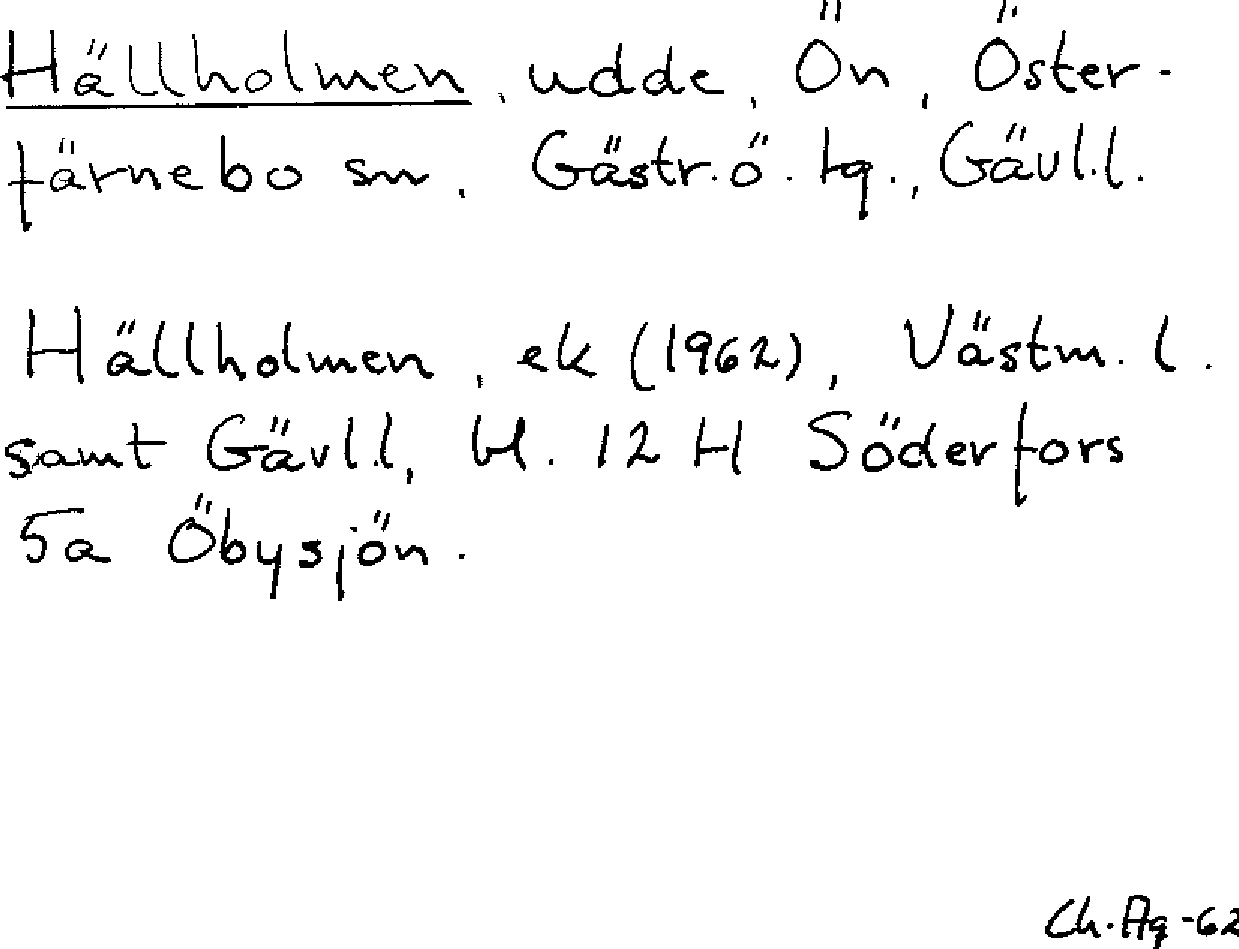 Hällholmen, udde, Ön, Öster-
färnebo sn, Gästr.ö. tg., Gävl.l.
Hällholmen, ek (1962), Västm. l.
samt Gävl.l, bl. 12 H Söderfors
5a Öbysjön.
Ch. Ag -62